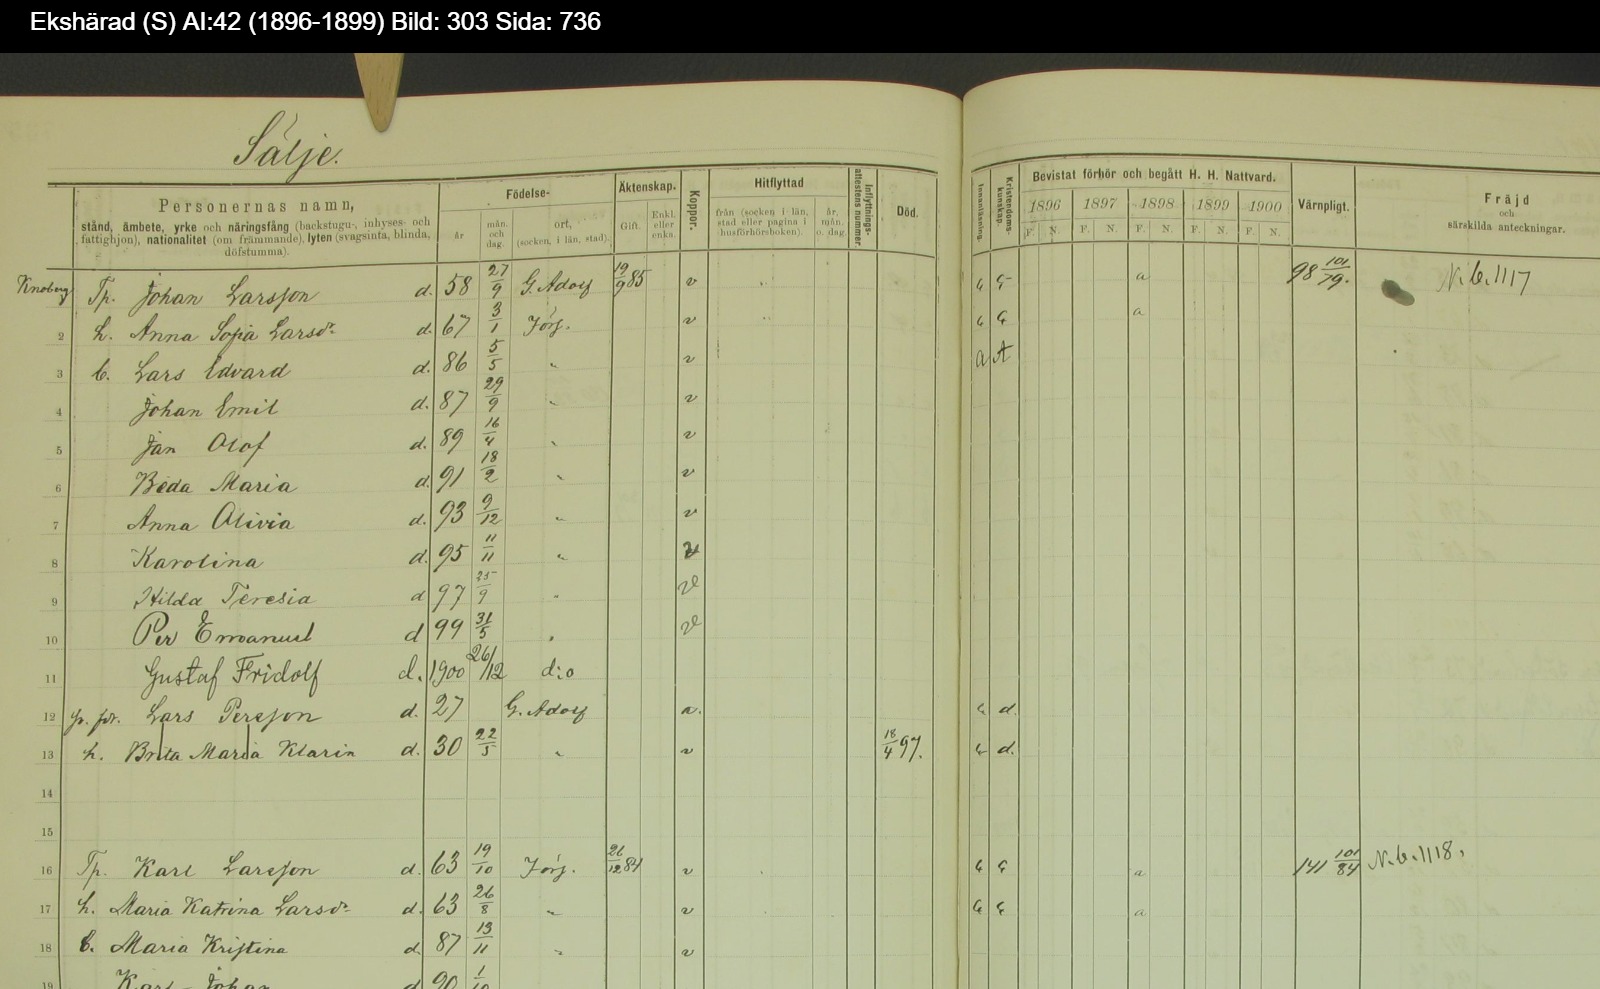 Ekshärad (S) AI:42 (1896-1899) Bild: 303 Sida: 736
Sälje.
Personernas namn,
stånd, ämbete, yrke och näringsfång (backstugu-, inhyses- och
fattighjon), nationalitet (om främmande), lyten (svagsinta, blinda,
döfstumma).
Födelse-
år
mån. och dag.
ort,
(socken, i län, stad).
Äktenskap.
Gift.
Enkl. eller enka.
Koppor.
Hitflyttad
från (socken i län, stad eller pagina i husförhörsboken).
år, mån. o. dag.
Inflyttnings-attestens nummer.
Död.
Innanläsning.
Kristendoms-kunskap.
Bevistat förhör och begått H. H. Nattvard.
1896 1897 1898 1899 1900
F. N. F. N. F. N. F. N. F. N.
Värnpligt.
Fräjd
och
särskilda anteckningar.
Knoberg Tp. Johan Larsson d. 58 27/9 G. Adolf 19/9 85 v a 98 101/79. N. b. 1117
2 h. Anna Sofia Larsdr d. 67 3/1 Förs. v a
3 b. Lars Edvard d. 86 5/5 " v a A
4 Johan Emil d. 87 29/9 " v
5 Jan Olof d. 89 16/4 " v
6 Beda Maria d. 91 18/2 " v
7 Anna Olivia d. 93 9/12 " v
8 Karolina d. 95 11/11 " v
9 Hilda Teresia d 97 25/9 "
10 Per Emanuel d 99 31/5 "
11 Gustaf Fridolf d. 1900 26/12 d:o
12 Lars Persson d. 27 G. Adolf a. d.
13 h. Brita Maria Klarin d. 30 22/5 " v 18/4 97. d.
14
15
16 Tp. Karl Larsson d. 63 19/10 Förs. 26/12 84 v a 141 101/84 N. b. 1118.
17 h. Maria Katrina Larsdr d. 63 26/8 " v a
18 b. Maria Kristina d. 87 13/11 " v
19 Karl Johan d 90 1/10